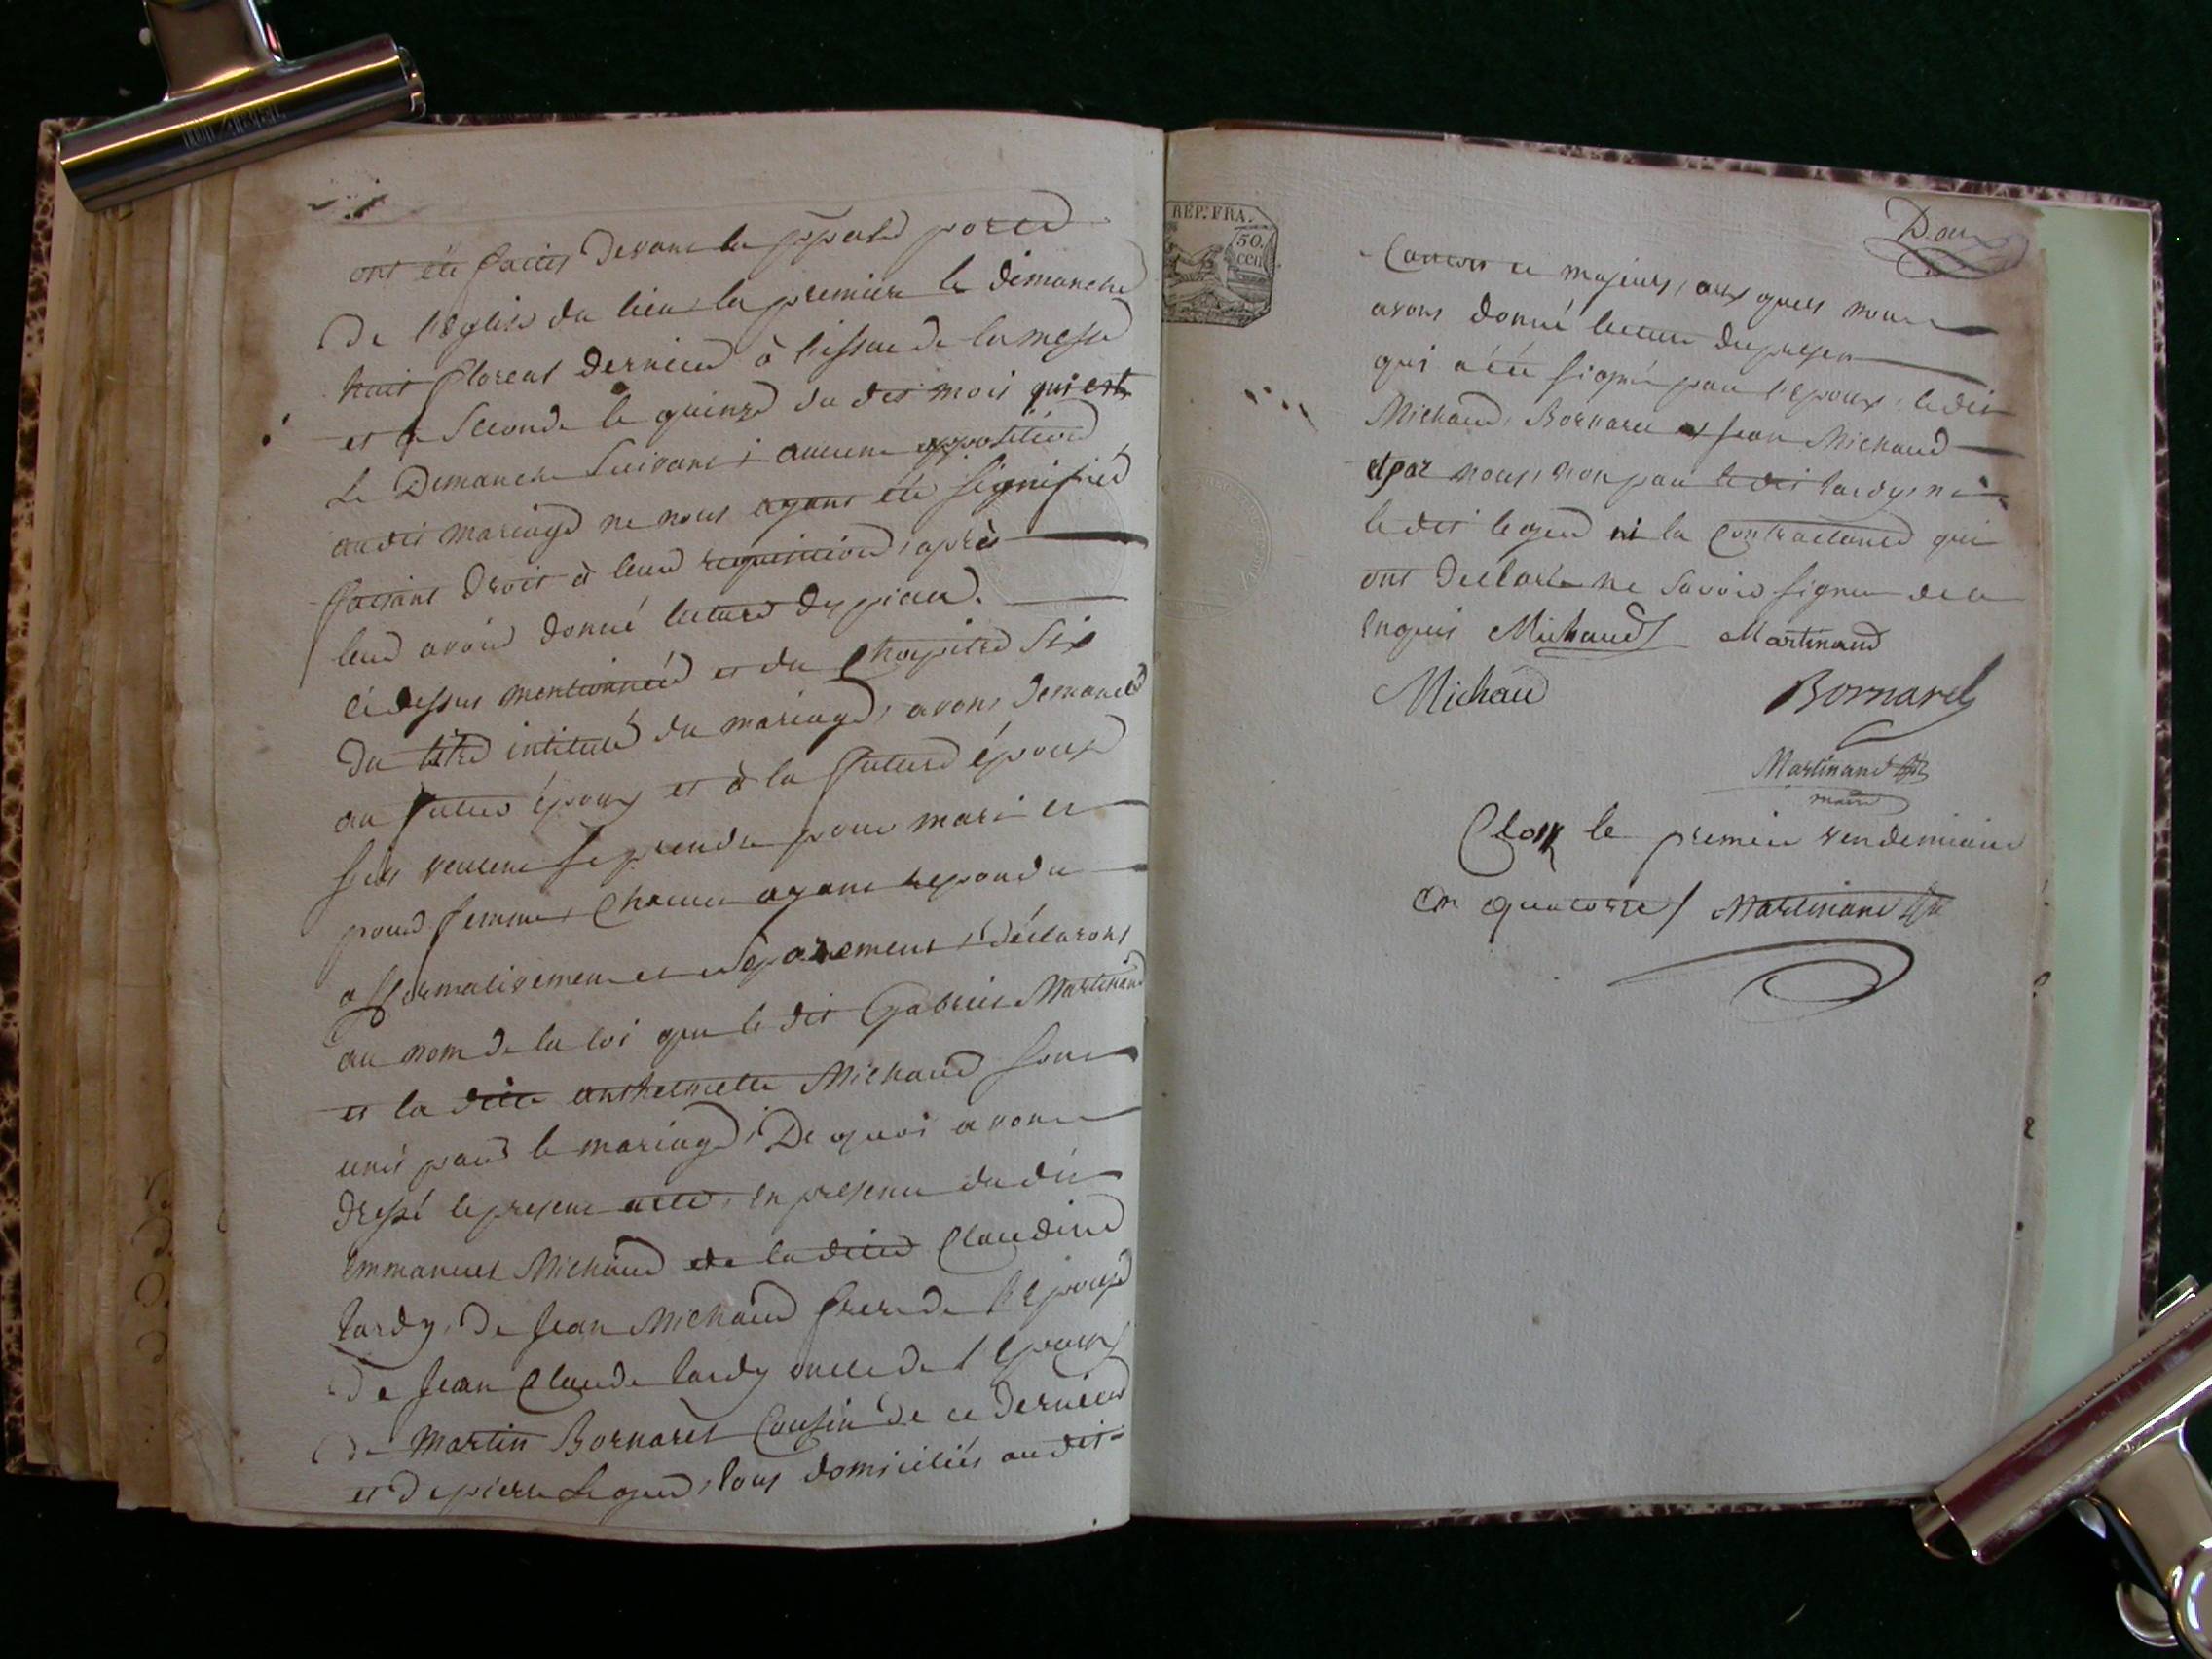 ont été faites devant la ppale porte
De l'Eglise du lieu la premiere le dimanche
huit floreal dernier à l'issue de la messe
et la seconde le quinze du dit mois qui est
Le Dimanche suivant; aucune opposition
audit mariage ne nous ayant été signifiée
faisant droit à leur requisition, après
leur avoir donné lecture des pieces
ci dessus mentionnées et du Chapitre Six
du titre intitulé du mariage, avons demandé
au futur époux et à la future épouse
s'ils veulent se prendre pour mari et
pour femme, Chacun ayant repondu
affirmativement et séparement, déclarons
au nom de la loi que le dit Gabriel Martinand
et la dite anthelmette Michaud sont
unis par le mariage, De quoi avons
dressé le present acte, en presence du dit
Emmanuel Michaud de la dite Claudine
tardy, de Jean Michaud frere de l'Epouse
de Jean Claude tardy oncle de l'Epoux
de Martin Bornarel Cousin de ce dernier
et de pierre Legeud, tous domiciliés au dit
REP. FRA.
50.
cen
Douze
Canton et majeurs, aux quels nous
avons donné lecture du present
qui a été signé par l'Epoux, le dit
Michaud, Bornarel et Jean Michaud
et par nous, non par le dit tardy, ni
le dit legeud ni la Contractante qui
ont declaré ne savoir signer de ce
enquis Michaud Martinand
Michaud Bornarel
Martinand
maire
Clos le premier vendemiaire
an quatorze / Martinand